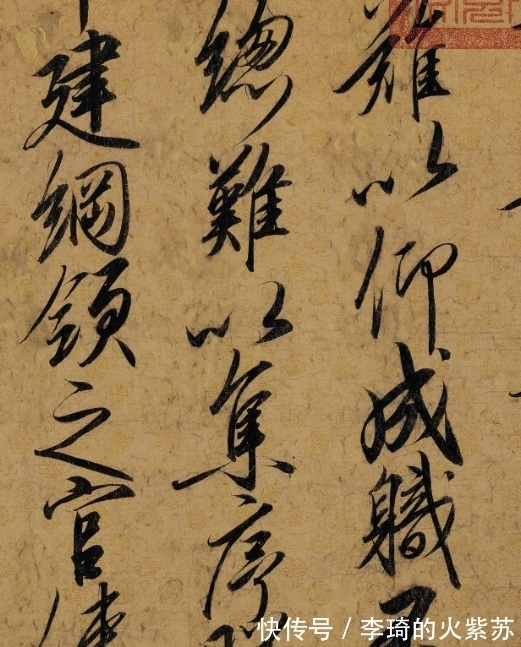 難以仰成職不
緫難以集序
建綱領之官使
快传号 / 李琦的火紫苏